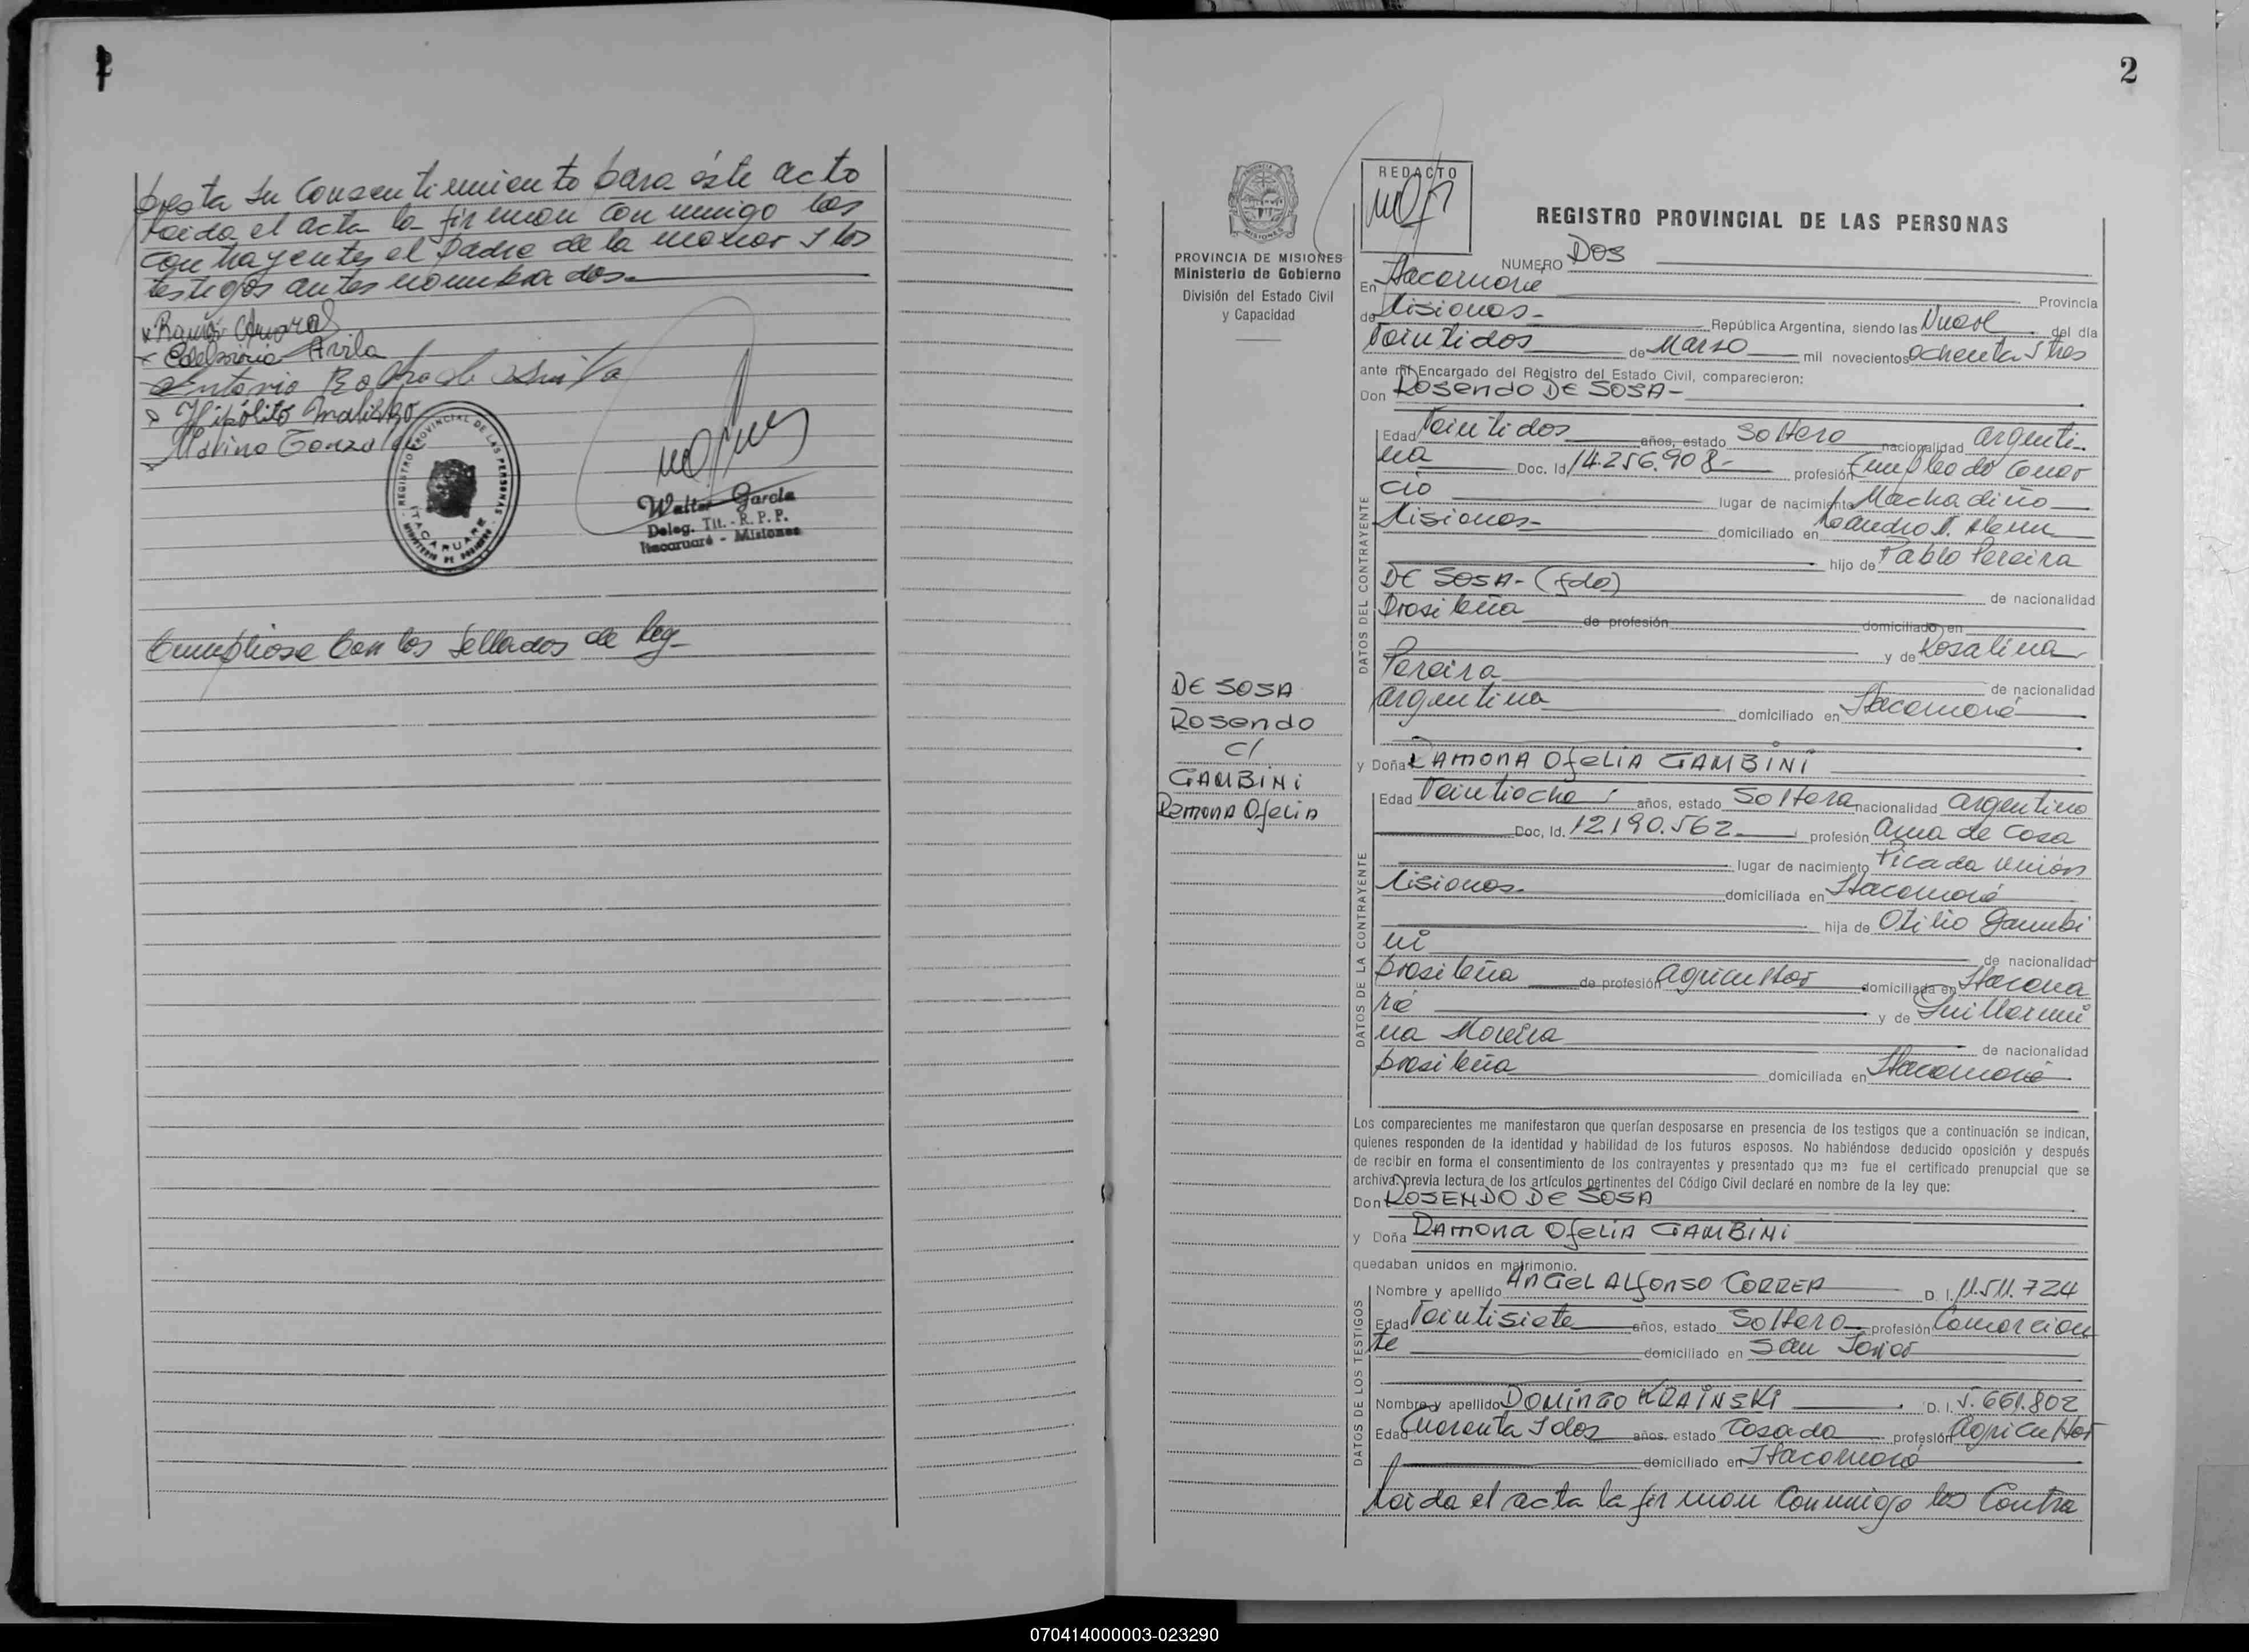 presta su Consentimiento para éste acto
Leida el acta la firman conmigo los
contrayentes el padre de la menor y los
testigos antes nombrados.
Ramón
Edelmiria Avila
Antonio
Hipólito
Marino Gonzalez
REGISTRO PROVINCIAL DE LAS PERSONAS
ITACARUARE
MINISTERIO DE GOBIERNO
Walter García
Deleg. Tit. - R. P. P.
Itacaruaré - Misiones
Cumpliose Con los Sellados de Ley
2
PROVINCIA DE MISIONES
Ministerio de Gobierno
División del Estado Civil
y Capacidad
DE SOSA
Rosendo
c/
GAMBINI
Ramona Ofelia
REDACTO
REGISTRO PROVINCIAL DE LAS PERSONAS
NUMERO DOS
En Itacaruaré Provincia
de Misiones- República Argentina, siendo las Nueve del día
Veintidos de Marzo mil novecientos ochenta y tres
ante mí Encargado del Registro del Estado Civil, comparecieron:
Don Rosendo DE SOSA-
DATOS DEL CONTRAYENTE
Edad Veintidos años, estado Soltero nacionalidad argenti-
na Doc. Id. 14.256.908- profesión Empleado Comer
cio lugar de nacimiento Machadiño
Misiones- domiciliado en Leandro N. Alem
hijo de Pablo Pereira
DE SOSA- (fdo) de nacionalidad
brasileña de profesión domiciliado en
y de Rosalina
Pereira de nacionalidad
argentina domiciliado en Itacaruaré
y Doña RAMONA OFELIA GAMBINI
DATOS DE LA CONTRAYENTE
Edad Veintiocho años, estado Soltera nacionalidad argentina
Doc. Id. 12.190.562 profesión ama de Casa
lugar de nacimiento Picada Unión
Misiones- domiciliada en Itacaruaré
hija de Otilio Gambi
ni de nacionalidad
brasileña de profesión agricultor domiciliada en Itacarua
ré y de Guillermi
na Moreira de nacionalidad
brasileña domiciliada en Itacaruaré
Los comparecientes me manifestaron que querían desposarse en presencia de los testigos que a continuación se indican,
quienes responden de la identidad y habilidad de los futuros esposos. No habiéndose deducido oposición y después
de recibir en forma el consentimiento de los contrayentes y presentado que me fue el certificado prenupcial que se
archiva, previa lectura de los artículos pertinentes del Código Civil declaré en nombre de la ley que:
Don ROSENDO DE SOSA
y Doña RAMONA OFELIA GAMBINI
quedaban unidos en matrimonio.
DATOS DE LOS TESTIGOS
Nombre y apellido ANGEL ALFONSO CORREA D. I. 11.511.724
Edad Veintisiete años, estado Soltero profesión Comercian
te domiciliado en San Javier
Nombre y apellido DOMINGO KRAINSKI D. I. 5.661.802
Edad Cuarenta y dos años, estado Casado profesión agricultor
domiciliado en Itacaruaré
Leida el acta la firman Conmigo los Contra
070414000003-023290